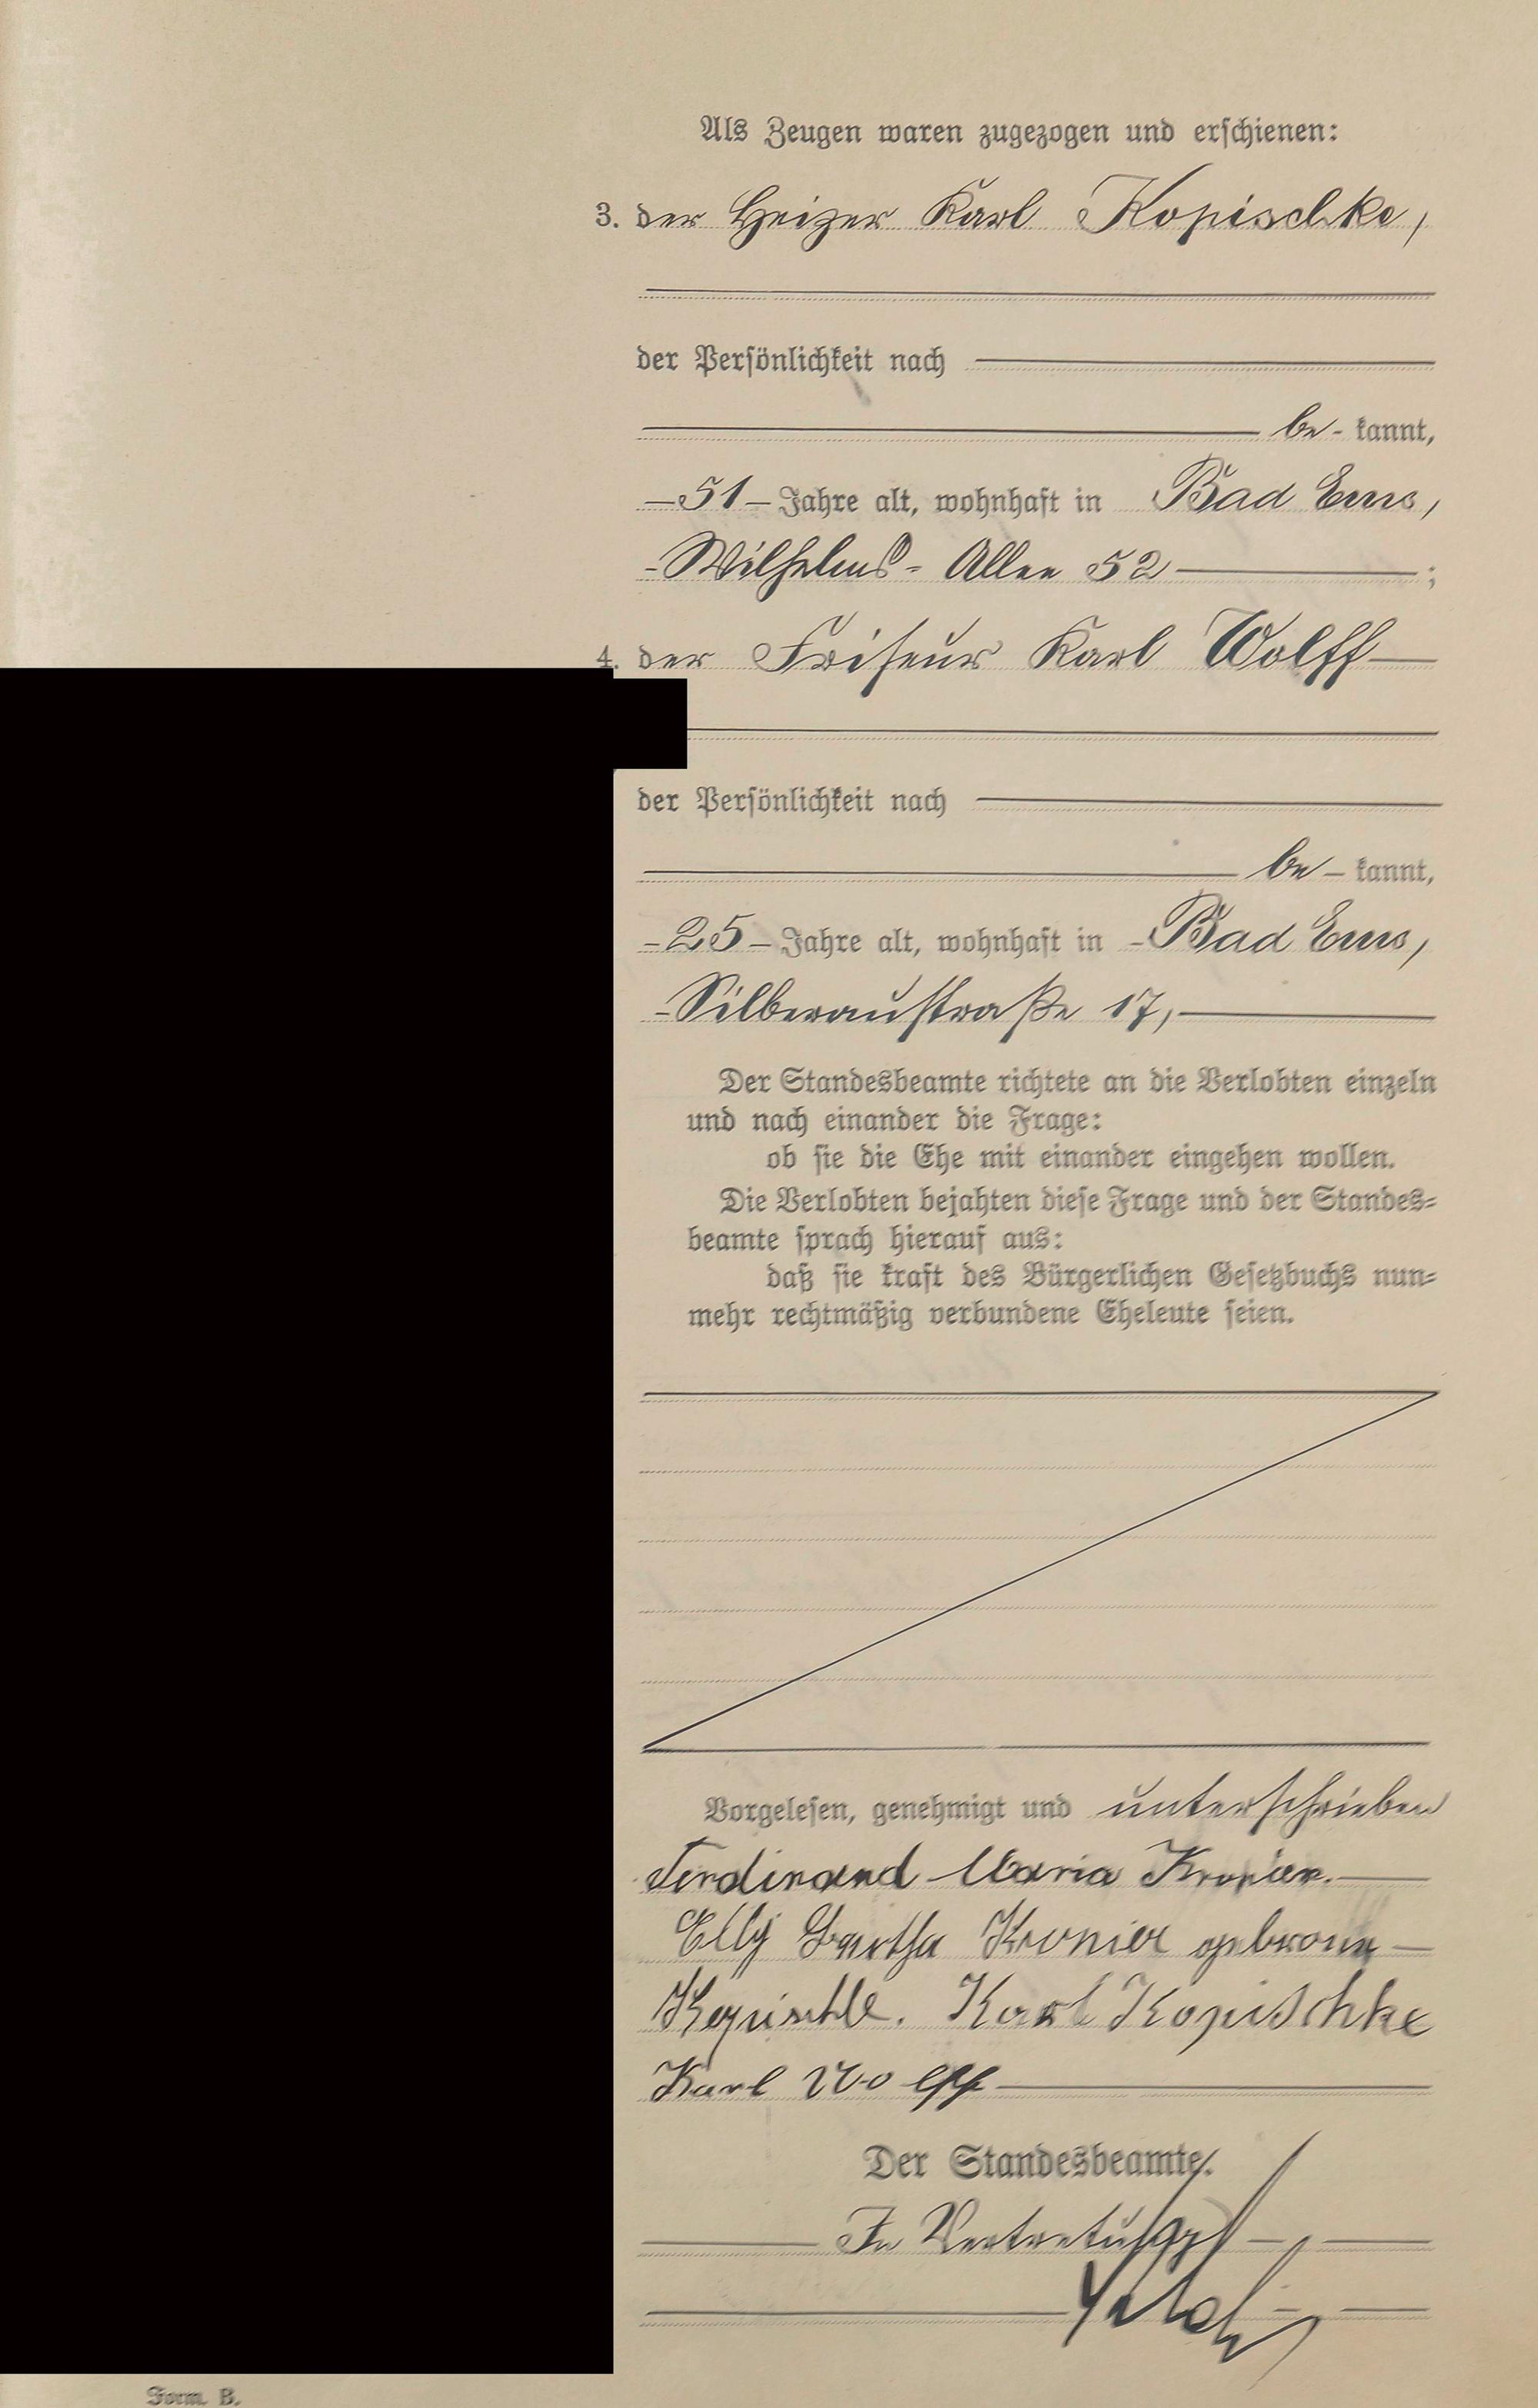 Als Zeugen waren zugezogen und erschienen:
3. der Heizer Karl Kopischke,
der Persönlichkeit nach
be- kannt,
-51- Jahre alt, wohnhaft in Bad Ems,
-Wilhelms- Allee 52 ;
4. der Friseur Karl Wolff
der Persönlichkeit nach
be- kannt,
-25- Jahre alt, wohnhaft in -Bad Ems,
-Silberaustraße 17,
Der Standesbeamte richtete an die Verlobten einzeln
und nach einander die Frage:
ob sie die Ehe mit einander eingehen wollen.
Die Verlobten bejahten diese Frage und der Standes-
beamte sprach hierauf aus:
daß sie kraft des Bürgerlichen Gesetzbuchs nun-
mehr rechtmäßig verbundene Eheleute seien.
Vorgelesen, genehmigt und unterschrieben
Ferdinand Maria
Elly Bertha Kronier geborene
Kopischke. Karl Kopischke
Karl Wolff
Der Standesbeamte.
In Vertretung
Form. B.